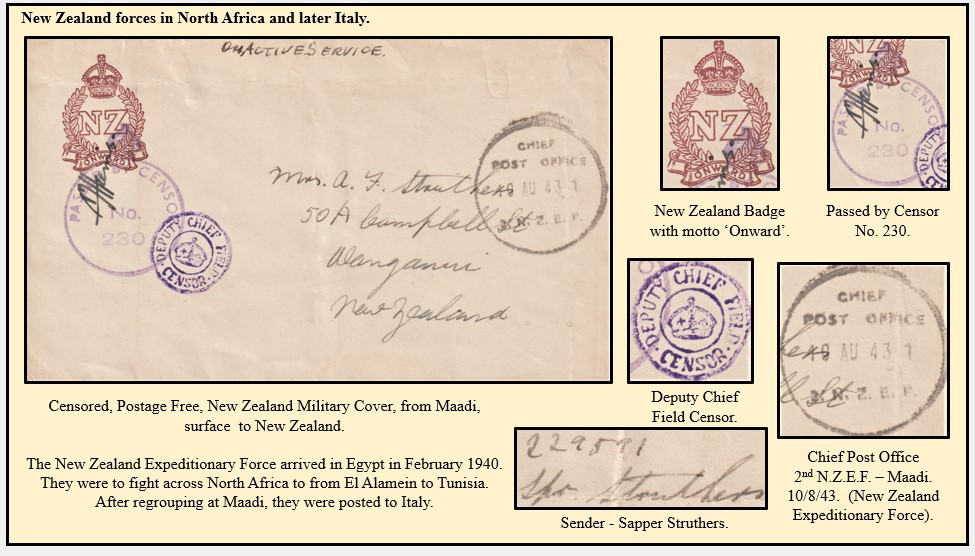 New Zealand forces in North Africa and later Italy.
ON ACTIVE SERVICE.
NZ
ONWARD
PASSED BY CENSOR
No.
230
DEPUTY CHIEF FIELD CENSOR
CHIEF
POST OFFICE
AU 43 1
N. Z. E. F.
Mrs. A. F. Struthers
50A Campbell St
Wanganui
New Zealand
NZ
ONWARD
New Zealand Badge
with motto ‘Onward’.
NZ
ONWARD
CENSOR
No.
230
Passed by Censor
No. 230.
DEPUTY CHIEF FIELD CENSOR
Deputy Chief
Field Censor.
CHIEF
POST OFFICE
AU 43 1
N. Z. E. F.
Chief Post Office
2nd N.Z.E.F. – Maadi.
10/8/43. (New Zealand
Expeditionary Force).
Censored, Postage Free, New Zealand Military Cover, from Maadi,
surface to New Zealand.
The New Zealand Expeditionary Force arrived in Egypt in February 1940.
They were to fight across North Africa to from El Alamein to Tunisia.
After regrouping at Maadi, they were posted to Italy.
229591
Spr. Struthers
Sender - Sapper Struthers.